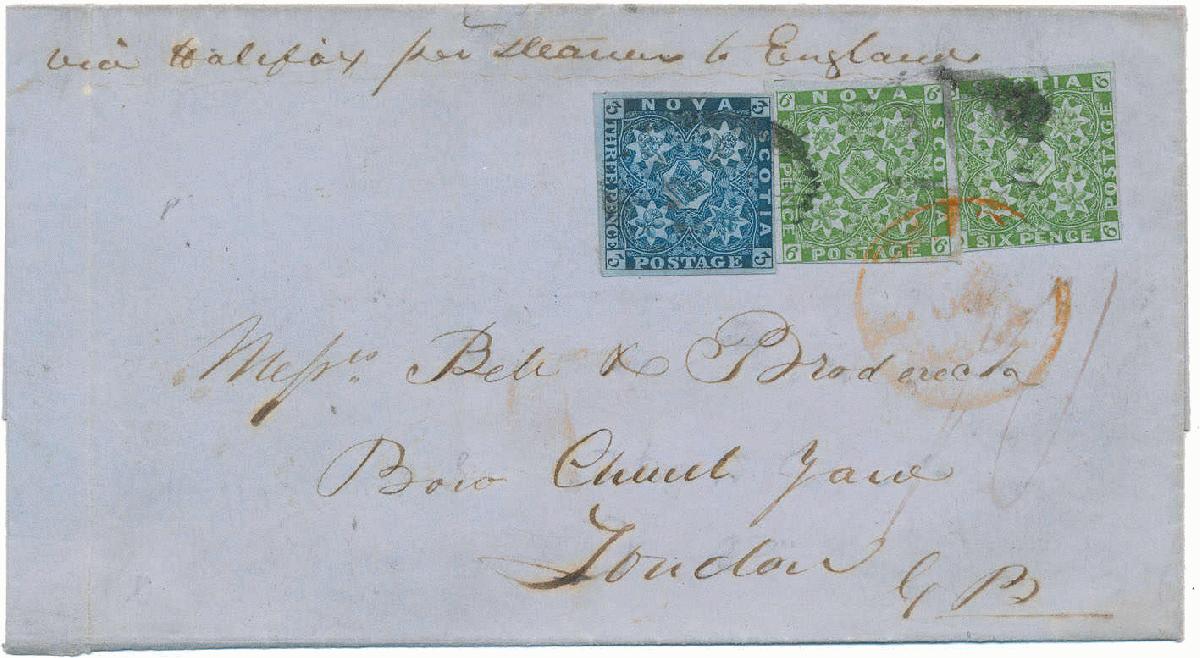 via Halifax per Steamer to England
NOVA
SCOTIA
THREE PENCE
POSTAGE
3
3
3
3
NOVA
SCOTIA
PENCE
POSTAGE
6
6
6
6
OTIA
POSTAGE
SIX PENCE
6
6
Messrs. Bell &
Bow Church Yard
London
G B